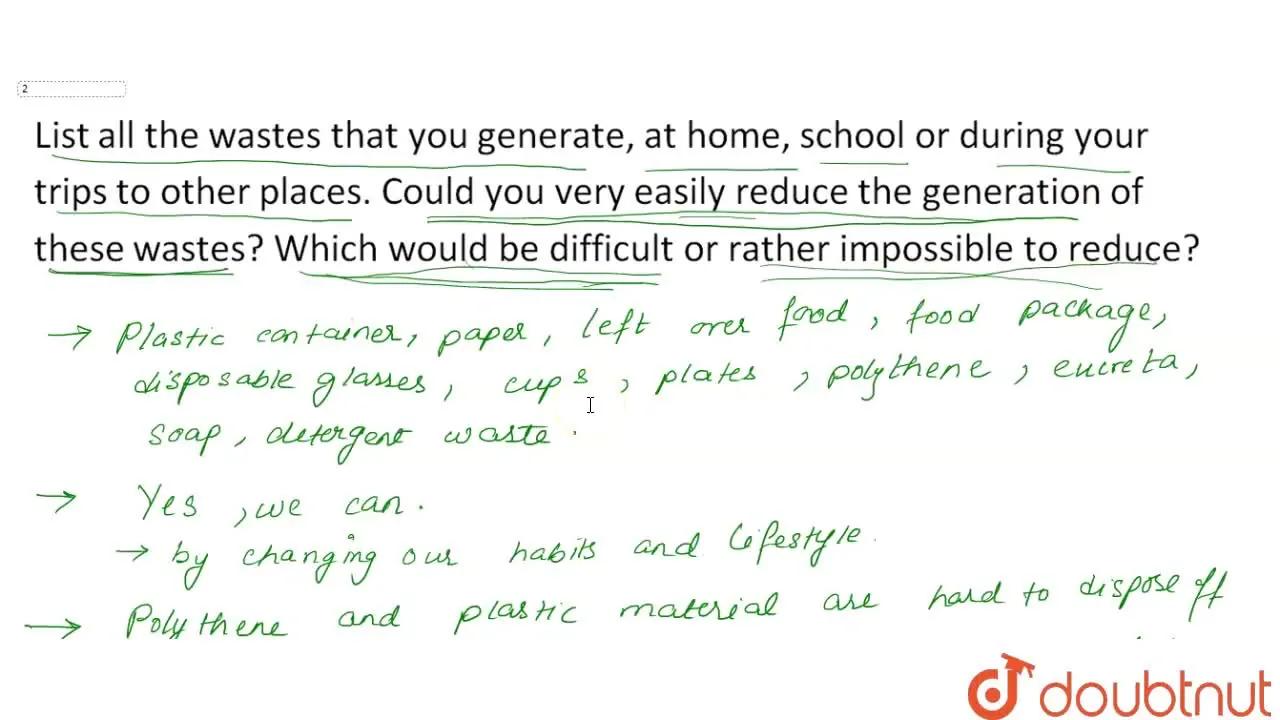 2
List all the wastes that you generate, at home, school or during your
trips to other places. Could you very easily reduce the generation of
these wastes? Which would be difficult or rather impossible to reduce?
→ Plastic container, paper, left over food, food package,
disposable glasses, cups, plates, polythene, encreta,
soap, detergent waste.
→ Yes, we can.
→ by changing our habits and lifestyle.
→ Polythene and plastic material are hard to dispose off
doubtnut